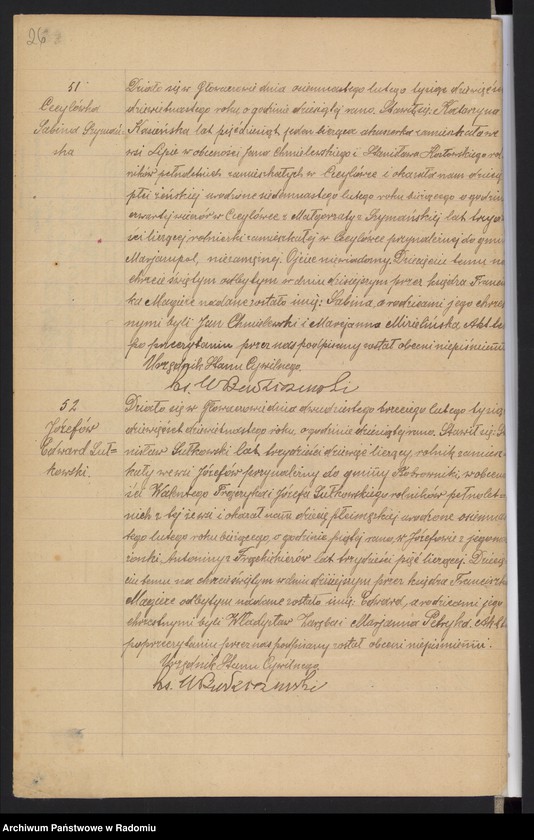 26
51
Cecylówka
Sabina Szymań-
ska
Działo się w Głowaczowie dnia osiemnastego lutego tysiąc dziewięćset
dziewiętnastego roku o godzinie dziesiątej rano. Stawiła się Katarzyna
Kosińska lat pięćdziesiąt jeden licząca akuszerka zamieszkała we
wsi Lipie w obecności Jana Chmielewskiego i Stanisława rol
ników pełnoletnich zamieszkałych w Cecylówce i okazała nam dziecię
płci żeńskiej urodzone siedemnastego lutego roku bieżącego o godzinie
czwartej wieczór w Cecylówce z Małgorzaty Szymańskiej lat trzydzie
ści liczącej rolniczki zamieszkałej w Cecylówce przynależnej do gminy
Marjampol, niezamężnej. Ojciec niewiadomy. Dziecięciu temu na
chrzcie świętym odbytym w dniu dzisiejszym przez księdza Francisz
ka Magiere nadane zostało imię: Sabina, a rodzicami jego chrzest
nymi byli Jan Chmielewski i Marjanna Mizielińska. Akt ten
po przeczytaniu przez nas podpisany został obecni niepiśmienni
Urzędnik Stanu Cywilnego.
ks.
52
Józefów
Edward Sut=
kowski.
Działo się w Głowaczowie dnia dwudziestego trzeciego lutego tysiąc
dziewięćset dziewiętnastego roku, o godzinie dziesiątej rano. Stawił się: Sta
nisław Sutkowski lat trzydzieści dziewięć liczący, rolnik, zamiesz
kały we wsi Józefów przynależny do gminy Kobrowniki, w obecno
ści Walentego i Józefa Sutkowskiego rolników pełnolet
nich z tej że wsi i okazał nam dziecię płci męzkiej urodzone osiemnas
tego lutego roku bieżącego, o godzinie piątej rano, w Józefowie z jego mał
żonki Antoniny z lat trzydzieści pięć liczącej. Dziecię
ciu temu na chrzcie świętym w dniu dzisiejszym przez księdza Franciszka
Magiere odbytym nadane zostało imię: Edward, a rodzicami jego
chrzestnymi byli Władysław i Marjanna Petryka. Akt ten
po przeczytaniu przez nas podpisany został obecni niepiśmienni.
Urzędnik Stanu Cywilnego
ks.
Archiwum Państwowe w Radomiu